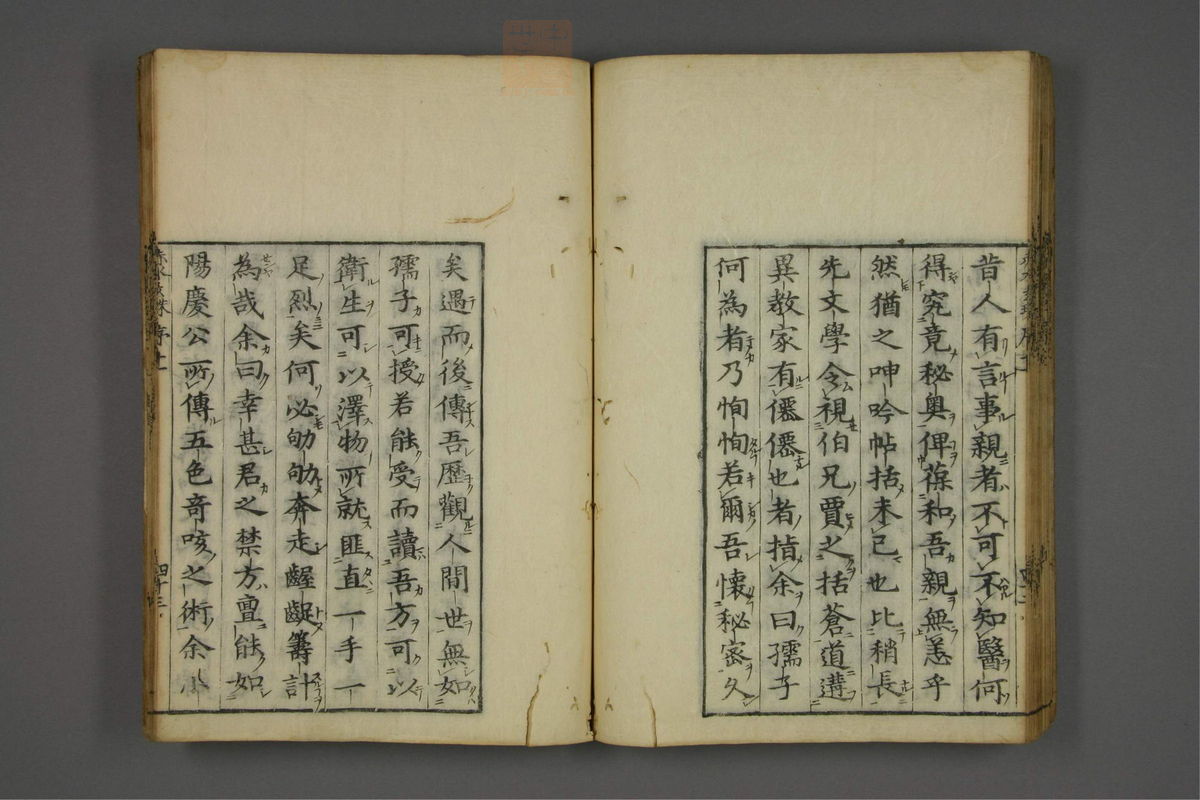 昔人有言事親者不可不知醫何
得究竟秘奧俾葆和吾親無恙乎
然猶之呻吟帖括未已也比稍長
先文學令視伯兄賈之括蒼道遘
異教家有僊僊也者指余曰孺子
何為者乃恂恂若爾吾懷秘密久
矣遇而後傳吾歷觀人間世無如
孺子可授若能受而讀吾方可以
衛生可以澤物所就匪直一手一
足烈矣何必劬劬奔走齷齪籌計
為哉余曰幸甚君之禁方亶能如
陽慶公所傳五色奇咳之術余小